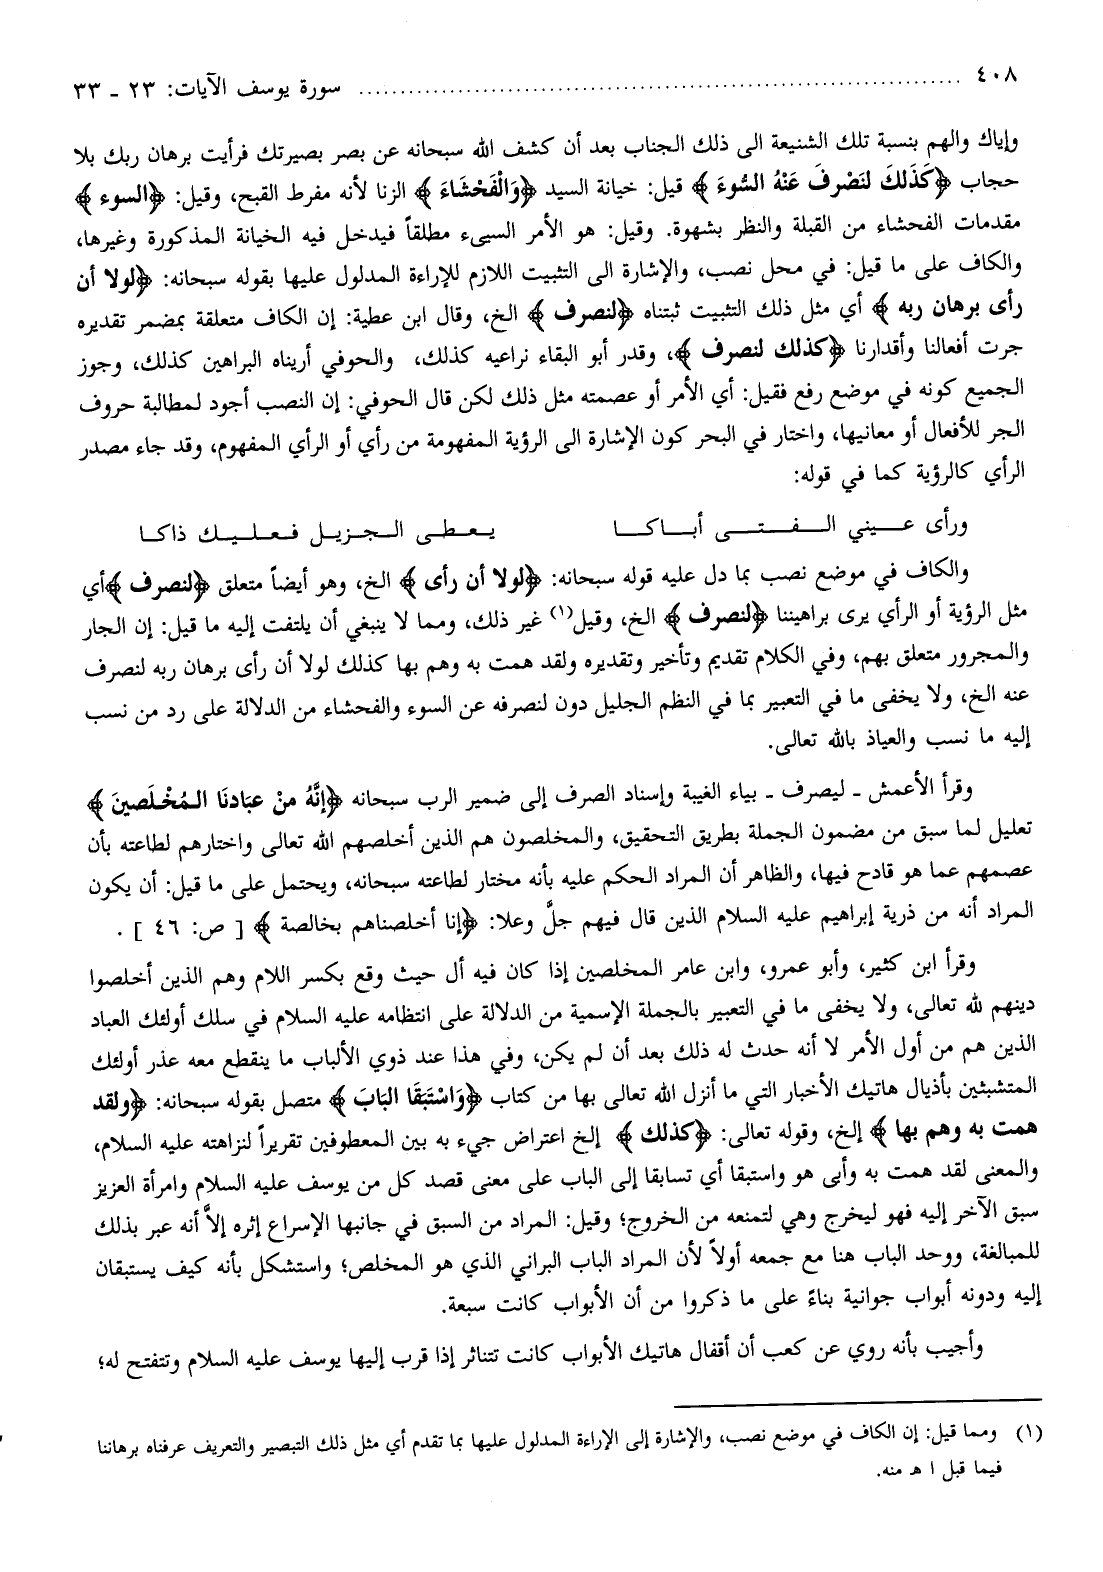 ٤٠٨ ........................................ سورة يوسف الآيات: ٢٣ ـ ٣٣
وإياك والهم بنسبة تلك الشنيعة الى ذلك الجناب بعد أن كشف الله سبحانه عن بصر بصيرتك فرأيت برهان ربك بلا
حجاب ﴿كَذَلكَ لنَصْرفَ عَنْهُ السُّوءَ﴾ قيل: خيانة السيد ﴿وَالْفَحْشَاءَ﴾ الزنا لأنه مفرط القبح، وقيل: ﴿السوء﴾
مقدمات الفحشاء من القبلة والنظر بشهوة. وقيل: هو الأمر السيىء مطلقاً فيدخل فيه الخيانة المذكورة وغيرها،
والكاف على ما قيل: في محل نصب، والإشارة الى التثبيت اللازم للإراءة المدلول عليها بقوله سبحانه: ﴿لولا أن
رأى برهان ربه﴾ أي مثل ذلك التثبيت ثبتناه ﴿لنصرف﴾ الخ، وقال ابن عطية: إن الكاف متعلقة بمضمر تقديره
جرت أفعالنا وأقدارنا ﴿كذلك لنصرف﴾، وقدر أبو البقاء نراعيه كذلك، والحوفي أريناه البراهين كذلك، وجوز
الجميع كونه في موضع رفع فقيل: أي الأمر أو عصمته مثل ذلك لكن قال الحوفي: إن النصب أجود لمطالبة حروف
الجر للأفعال أو معانيها، واختار في البحر كون الإشارة الى الرؤية المفهومة من رأي أو الرأي المفهوم، وقد جاء مصدر
الرأي كالرؤية كما في قوله:
ورأى عـيني الـفـتـى أبـاكـا يـعـطـى الـجـزيـل فـعـلـيـك ذاكـا
والكاف في موضع نصب بما دل عليه قوله سبحانه: ﴿لولا أن رأى﴾ الخ، وهو أيضاً متعلق ﴿لنصرف﴾أي
مثل الرؤية أو الرأي يرى براهيننا ﴿لنصرف﴾ الخ، وقيل(١) غير ذلك، ومما لا ينبغي أن يلتفت إليه ما قيل: إن الجار
والمجرور متعلق بهم، وفي الكلام تقديم وتأخير وتقديره ولقد همت به وهم بها كذلك لولا أن رأى برهان ربه لنصرف
عنه الخ، ولا يخفى ما في التعبير بما في النظم الجليل دون لنصرفه عن السوء والفحشاء من الدلالة على رد من نسب
إليه ما نسب والعياذ بالله تعالى.
وقرأ الأعمش ـ ليصرف ـ بياء الغيبة وإسناد الصرف إلى ضمير الرب سبحانه ﴿إنَّهُ منْ عبَادنَا المُخْلَصينَ﴾
تعليل لما سبق من مضمون الجملة بطريق التحقيق، والمخلصون هم الذين أخلصهم الله تعالى واختارهم لطاعته بأن
عصمهم عما هو قادح فيها، والظاهر أن المراد الحكم عليه بأنه مختار لطاعته سبحانه، ويحتمل على ما قيل: أن يكون
المراد أنه من ذرية إبراهيم عليه السلام الذين قال فيهم جلَّ وعلا: ﴿إنا أخلصناهم بخالصة﴾ [ ص: ٤٦ ] .
وقرأ ابن كثير، وأبو عمرو، وابن عامر المخلصين إذا كان فيه أل حيث وقع بكسر اللام وهم الذين أخلصوا
دينهم لله تعالى، ولا يخفى ما في التعبير بالجملة الإسمية من الدلالة على انتظامه عليه السلام في سلك أولئك العباد
الذين هم من أول الأمر لا أنه حدث له ذلك بعد أن لم يكن، وفي هذا عند ذوي الألباب ما ينقطع معه عذر أولئك
المتشبثين بأذيال هاتيك الأخبار التي ما أنزل الله تعالى بها من كتاب ﴿وَاسْتَبقَا البَابَ﴾ متصل بقوله سبحانه: ﴿ولقد
همت به وهم بها﴾ إلخ، وقوله تعالى: ﴿كذلك﴾ إلخ اعتراض جيء به بين المعطوفين تقريراً لنزاهته عليه السلام،
والمعنى لقد همت به وأبى هو واستبقا أي تسابقا إلى الباب على معنى قصد كل من يوسف عليه السلام وامرأة العزيز
سبق الآخر إليه فهو ليخرج وهي لتمنعه من الخروج؛ وقيل: المراد من السبق في جانبها الإسراع إثره إلاَّ أنه عبر بذلك
للمبالغة، ووحد الباب هنا مع جمعه أولاً لأن المراد الباب البراني الذي هو المخلص؛ واستشكل بأنه كيف يستبقان
إليه ودونه أبواب جوانية بناءً على ما ذكروا من أن الأبواب كانت سبعة.
وأجيب بأنه روي عن كعب أن أقفال هاتيك الأبواب كانت تتناثر إذا قرب إليها يوسف عليه السلام وتتفتح له؛
(١) ومما قيل: إن الكاف في موضع نصب، والإشارة إلى الإراءة المدلول عليها بما تقدم أي مثل ذلك التبصير والتعريف عرفناه برهاننا
فيما قبل ا هـ منه.